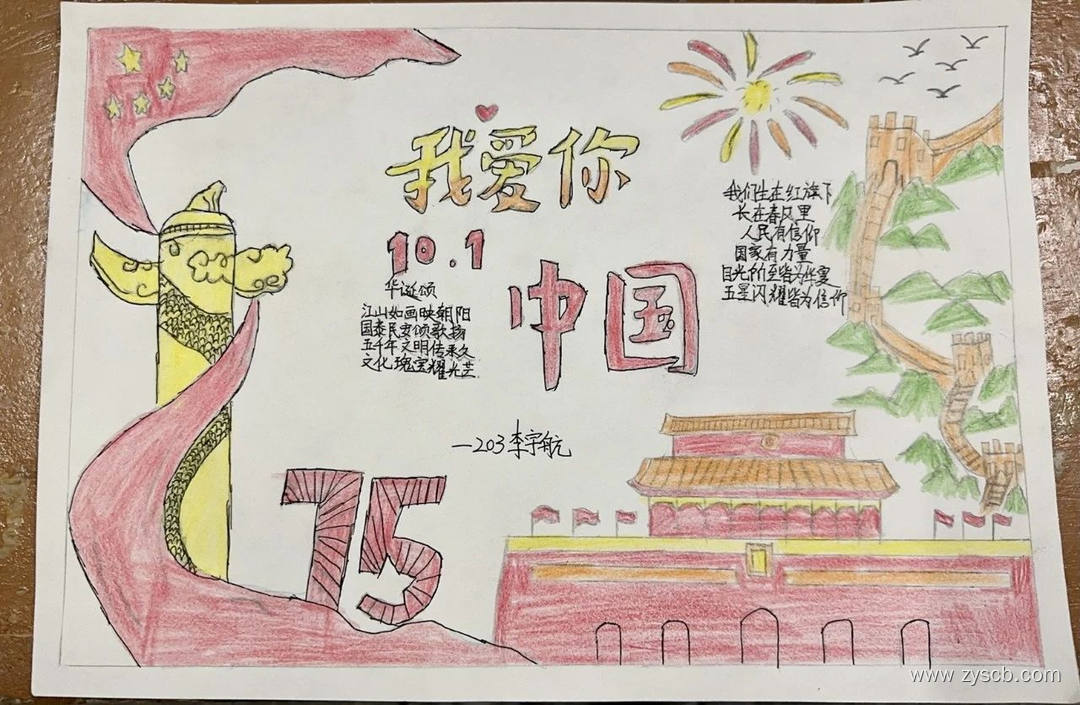 我爱你
10.1
华诞颂
江山如画映朝阳
国泰民安颂歌扬
五千年文明传承久
文化瑰宝耀光芒
中国
我们生在红旗下
长在春风里
人民有信仰
国家有力量
目光所至皆为华夏
五星闪耀皆为信仰
—203李宇航
75
www.zyscb.com